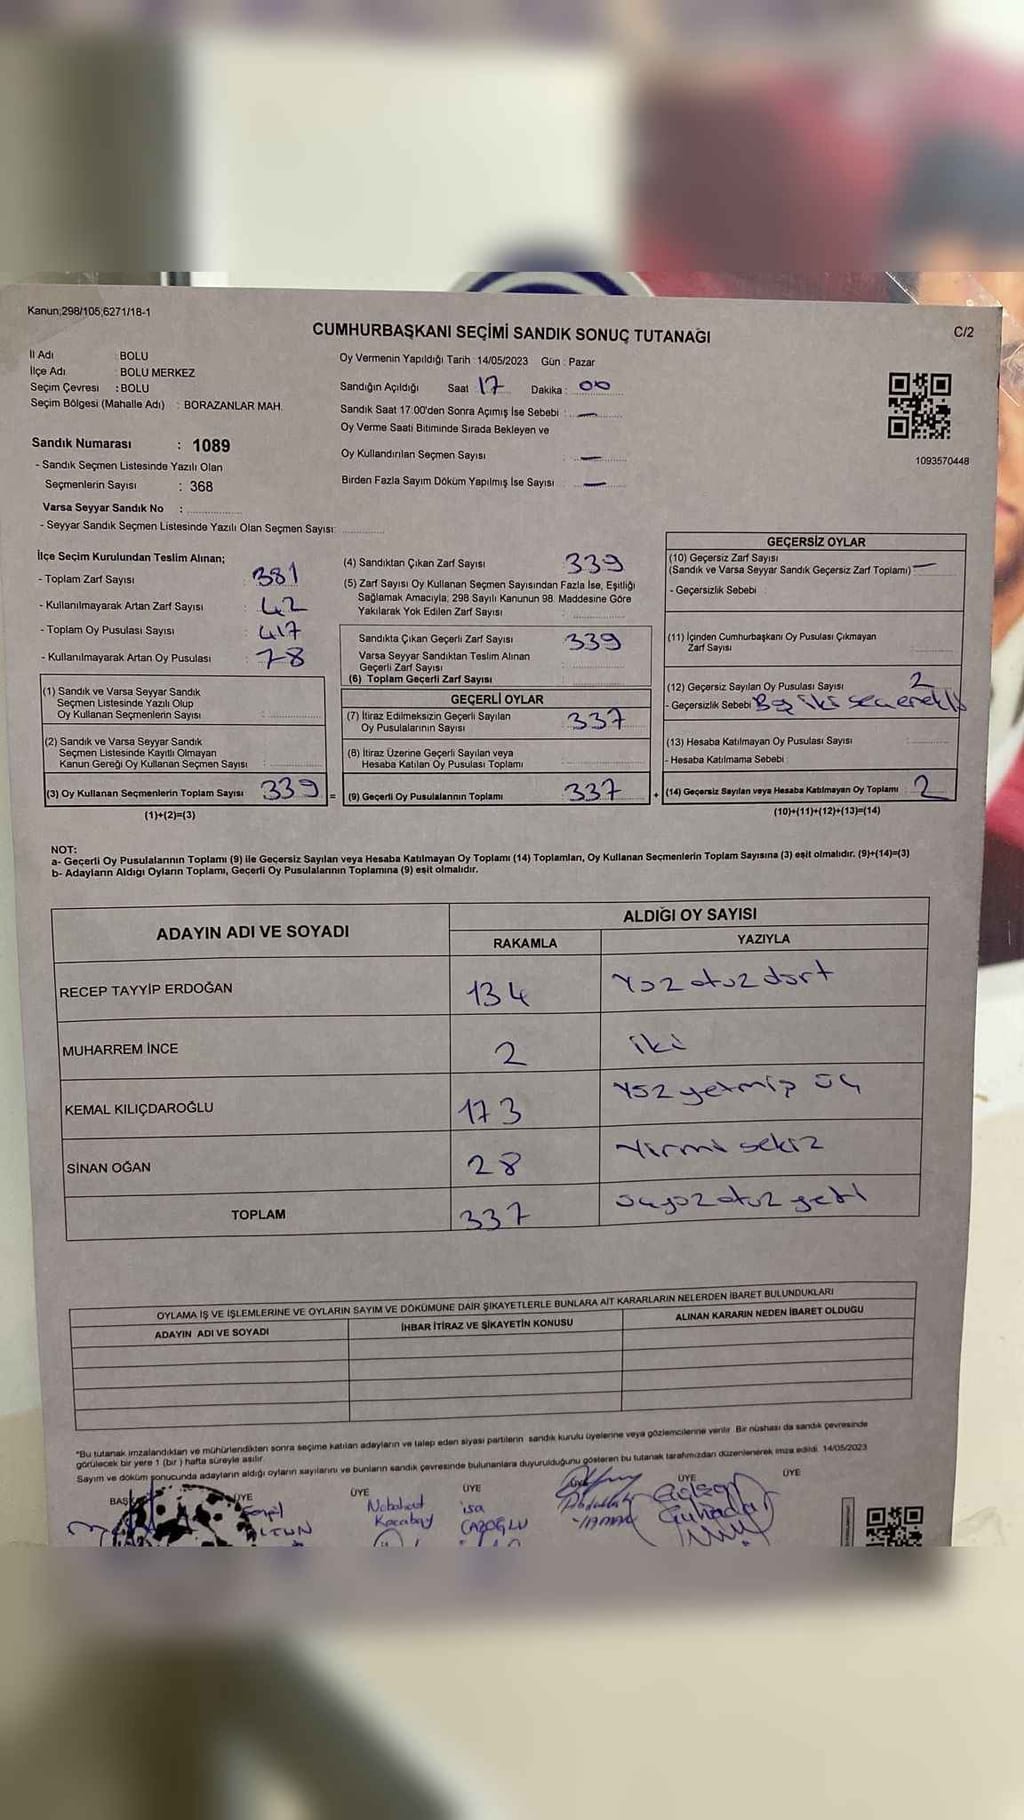 Kanun;298/105,6271/18-1
CUMHURBAŞKANI SEÇİMİ SANDIK SONUÇ TUTANAĞI
C/2
İl Adı : BOLU
İlçe Adı : BOLU MERKEZ
Seçim Çevresi : BOLU
Seçim Bölgesi (Mahalle Adı) : BORAZANLAR MAH.
Sandık Numarası : 1089
- Sandık Seçmen Listesinde Yazılı Olan
Seçmenlerin Sayısı : 368
Varsa Seyyar Sandık No :
- Seyyar Sandık Seçmen Listesinde Yazılı Olan Seçmen Sayısı:
Oy Vermenin Yapıldığı Tarih : 14/05/2023 Gün : Pazar
Sandığın Açıldığı Saat 17 Dakika : 00
Sandık Saat 17:00'den Sonra Açımış İse Sebebi : —
Oy Verme Saati Bitiminde Sırada Bekleyen ve
Oy Kullandırılan Seçmen Sayısı : —
Birden Fazla Sayım Döküm Yapılmış İse Sayısı : —
1093570448
İlçe Seçim Kurulundan Teslim Alınan;
- Toplam Zarf Sayısı : 381
- Kullanılmayarak Artan Zarf Sayısı : 42
- Toplam Oy Pusulası Sayısı : 417
- Kullanılmayarak Artan Oy Pusulası : 78
(1) Sandık ve Varsa Seyyar Sandık
Seçmen Listesinde Yazılı Olup
Oy Kullanan Seçmenlerin Sayısı :
(2) Sandık ve Varsa Seyyar Sandık
Seçmen Listesinde Kayıtlı Olmayan
Kanun Gereği Oy Kullanan Seçmen Sayısı :
(3) Oy Kullanan Seçmenlerin Toplam Sayısı 339 =
(1)+(2)=(3)
(4) Sandıktan Çıkan Zarf Sayısı 339
(5) Zarf Sayısı Oy Kullanan Seçmen Sayısından Fazla İse, Eşitliği
Sağlamak Amacıyla; 298 Sayılı Kanunun 98. Maddesine Göre
Yakılarak Yok Edilen Zarf Sayısı :
Sandıkta Çıkan Geçerli Zarf Sayısı 339
Varsa Seyyar Sandıktan Teslim Alınan
Geçerli Zarf Sayısı
(6) Toplam Geçerli Zarf Sayısı
GEÇERLİ OYLAR
(7) İtiraz Edilmeksizin Geçerli Sayılan
Oy Pusulalarının Sayısı : 337
(8) İtiraz Üzerine Geçerli Sayılan veya
Hesaba Katılan Oy Pusulası Toplamı :
(9) Geçerli Oy Pusulalarının Toplamı 337 +
GEÇERSİZ OYLAR
(10) Geçersiz Zarf Sayısı
(Sandık ve Varsa Seyyar Sandık Geçersiz Zarf Toplamı) —
- Geçersizlik Sebebi :
(11) İçinden Cumhurbaşkanı Oy Pusulası Çıkmayan
Zarf Sayısı
(12) Geçersiz Sayılan Oy Pusulası Sayısı 2
- Geçersizlik Sebebi iki
(13) Hesaba Katılmayan Oy Pusulası Sayısı
- Hesaba Katılmama Sebebi :
(14) Geçersiz Sayılan veya Hesaba Katılmayan Oy Toplamı 2
(10)+(11)+(12)+(13)=(14)
NOT:
a- Geçerli Oy Pusulalarının Toplamı (9) ile Geçersiz Sayılan veya Hesaba Katılmayan Oy Toplamı (14) Toplamları, Oy Kullanan Seçmenlerin Toplam Sayısına (3) eşit olmalıdır. (9)+(14)=(3)
b- Adayların Aldığı Oyların Toplamı, Geçerli Oy Pusulalarının Toplamına (9) eşit olmalıdır.
ADAYIN ADI VE SOYADI
ALDIĞI OY SAYISI
RAKAMLA YAZIYLA
RECEP TAYYİP ERDOĞAN 134 Yüz otuz dört
MUHARREM İNCE 2 iki
KEMAL KILIÇDAROĞLU 173 Yüz yetmiş üç
SİNAN OĞAN 28 Yirmi sekiz
TOPLAM 337 üçyüz otuz yedi
OYLAMA İŞ VE İŞLEMLERİNE VE OYLARIN SAYIM VE DÖKÜMÜNE DAİR ŞİKAYETLERLE BUNLARA AİT KARARLARIN NELERDEN İBARET BULUNDUKLARI
ADAYIN ADI VE SOYADI
İHBAR İTİRAZ VE ŞİKAYETİN KONUSU
ALINAN KARARIN NEDEN İBARET OLDUĞU
*Bu tutanak imzalandıktan ve mühürlendikten sonra seçime katılan adayların ve talep eden siyasi partilerin sandık kurulu üyelerine veya gözlemcilerine verilir. Bir nüshası da sandık çevresinde
görülecek bir yere 1 (bir) hafta süreyle asılır.
Sayım ve döküm sonucunda adayların aldığı oyların sayılarını ve bunların sandık çevresinde bulunanlara duyurulduğunu gösteren bu tutanak tarafımızdan düzenlenerek imza edildi. 14/05/2023
ÜYE ÜYE ÜYE ÜYE ÜYE
Nebahat
Karabay
isa
Abdullah